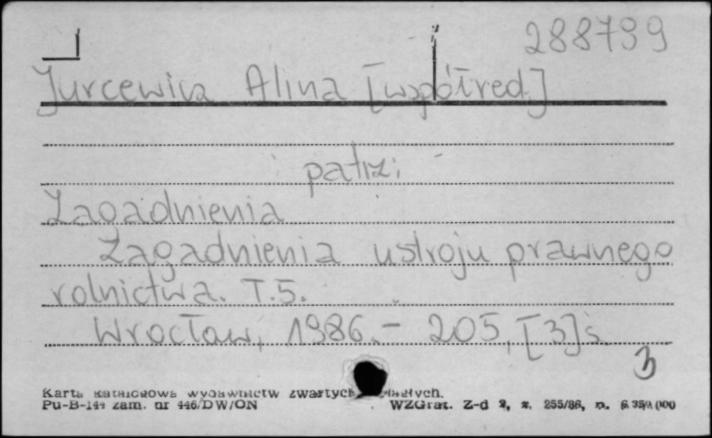 288799
Jurcewicz Alina [współred.]
patrz:
Zagadnienia
Zagadnienia ustroju prawnego
rolnictwa. T.5.
Wrocław, 1986.- 205, [3] s.
3
Karta katalogowa wydawnictw zwartych
Pu-B-144 zam. nr 446/DW/ON WZGraf. Z-d 2, z. 255/86, n.